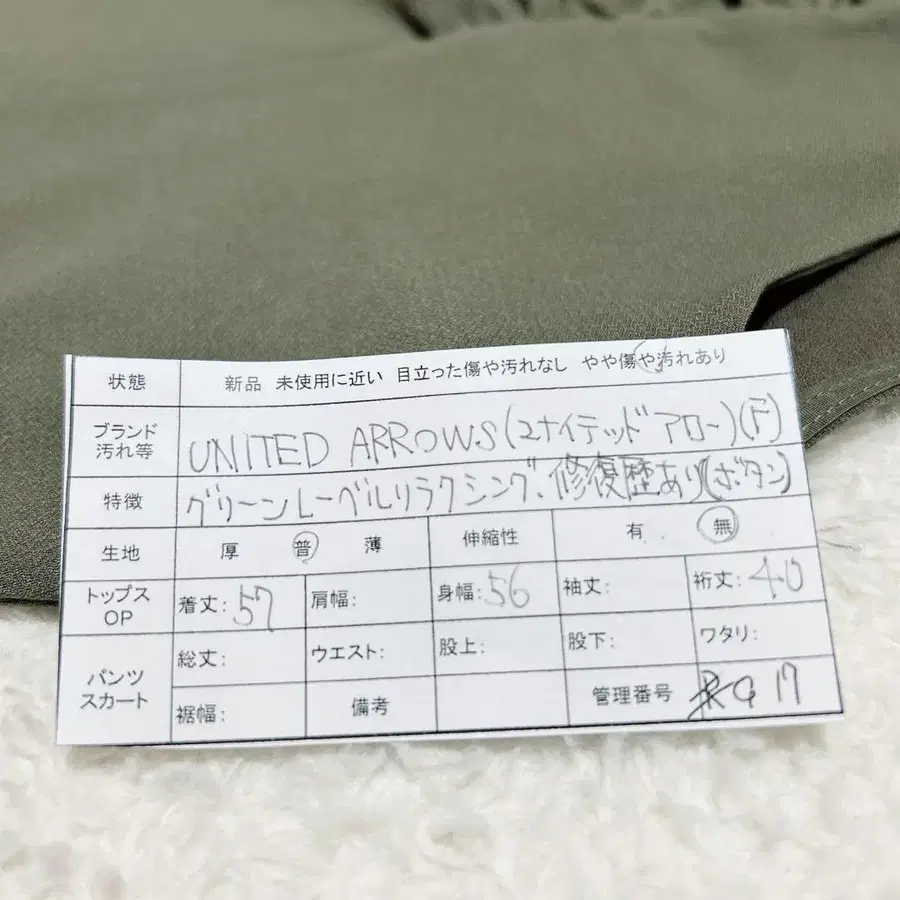 状態 新品 未使用に近い 目立った傷や汚れなし やや傷や汚れあり
ブランド
汚れ等
UNITED ARROWS(ユナイテッド アロー)(F)
特徴 グリーンレーベルリラクシング、修復歴あり(ボタン)
生地 厚 普 薄 伸縮性 有 無
トップス
OP
着丈: 57 肩幅: 身幅: 56 袖丈: 裄丈: 40
パンツ
スカート
総丈: ウエスト: 股上: 股下: ワタリ:
裾幅: 備考 管理番号 G17